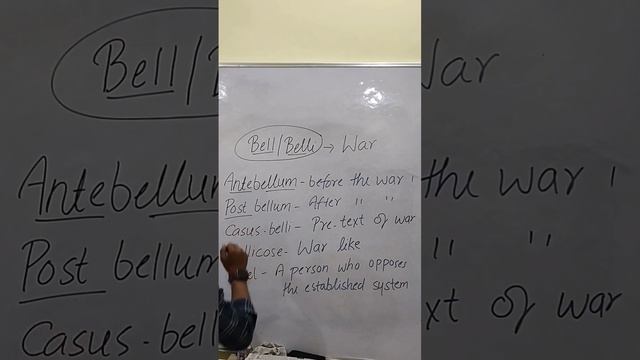 Bell/Belli → War
Antebellum - before the war
Post bellum - After " "
Casus-belli - Pre-text of war
llicose - War like
el - A person who opposes
the established system